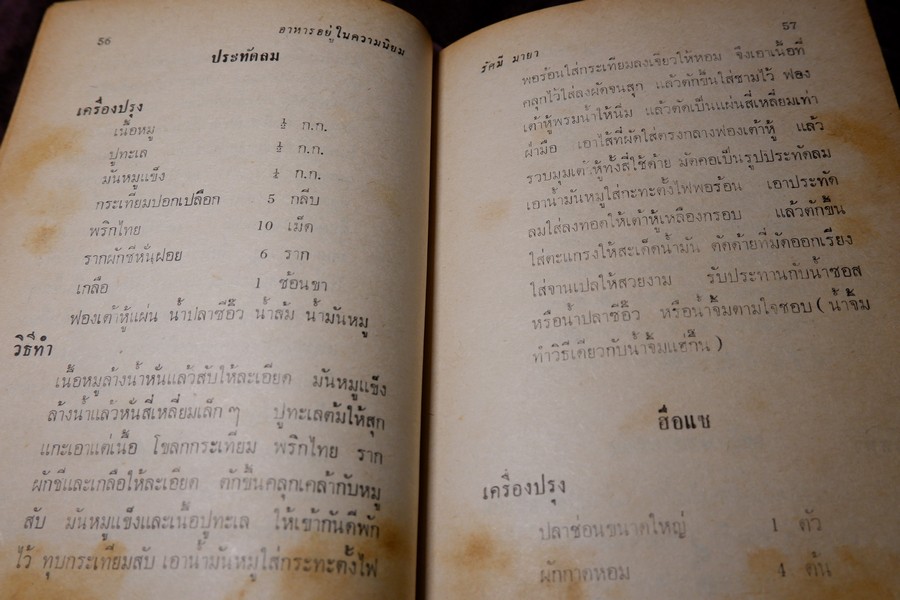 56
อาหารอยู่ในความนิยม
ประทัดลม
เครื่องปรุง
เนื้อหมู ½ ก.ก.
ปูทะเล ½ ก.ก.
มันหมูแข็ง ¼ ก.ก.
กระเทียมปอกเปลือก 5 กลีบ
พริกไทย 10 เม็ด
รากผักชีหั่นฝอย 6 ราก
เกลือ 1 ช้อนชา
ฟองเต้าหู้แผ่น น้ำปลาซีอิ๊ว น้ำส้ม น้ำมันหมู
วิธีทำ
เนื้อหมูล้างน้ำหั่นแล้วสับให้ละเอียด มันหมูแข็ง
ล้างน้ำแล้วหั่นสี่เหลี่ยมเล็ก ๆ ปูทะเลต้มให้สุก
แกะเอาแต่เนื้อ โขลกกระเทียม พริกไทย ราก
ผักชีและเกลือให้ละเอียด ตักขึ้นคลุกเคล้ากับหมู
สับ มันหมูแข็งและเนื้อปูทะเล ให้เข้ากันดีพัก
ไว้ ทุบกระเทียมสับ เอาน้ำมันหมูใส่กระทะตั้งไฟ
57
รัศมี มายา
พอร้อนใส่กระเทียมลงเจียวให้หอม จึงเอาเนื้อที่
คลุกไว้ใส่ลงผัดจนสุก แล้วตักขึ้นใส่ชามไว้ ฟอง
เต้าหู้พรมน้ำให้นิ่ม แล้วตัดเป็นแผ่นสี่เหลี่ยมเท่า
ฝ่ามือ เอาไส้ที่ผัดใส่ตรงกลางฟองเต้าหู้ แล้ว
รวบมุมเต้าหู้ทั้งสี่ใช้ด้าย มัดคอเป็นรูปประทัดลม
เอาน้ำมันหมูใส่กะทะตั้งไฟพอร้อน เอาประทัด
ลมใส่ลงทอดให้เต้าหู้เหลืองกรอบ แล้วตักขึ้น
ใส่ตะแกรงให้สะเด็ดน้ำมัน ตัดด้ายที่มัดออกเรียง
ใส่จานเปลให้สวยงาม รับประทานกับน้ำซอส
หรือน้ำปลาซีอิ๊ว หรือน้ำจิ้มตามใจชอบ ( น้ำจิ้ม
ทำวิธีเดียวกับน้ำจิ้มแฮ่กึ๊น )
ฮือแซ
เครื่องปรุง
ปลาช่อนขนาดใหญ่ 1 ตัว
ผักกาดหอม 4 ต้น